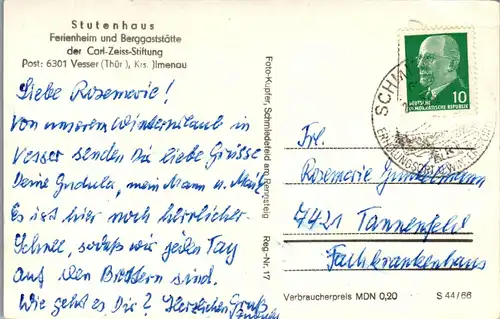 Stutenhaus
Ferienheim und Berggaststätte
der Carl-Zeiss-Stiftung
Post: 6301 Vesser (Thür), Krs. Jlmenau
Liebe Rosemarie!
Von unserem Winterurlaub in
Vesser senden Dir liebe Grüsse
Deine Gudula, mein Mann u.
Es ist hier noch herrlicher
Schnee, sodaß wir jeden Tag
auf den Brettern sind.
Wie geht es Dir? Herzlichen Gruß
Gudula
Foto-Kupfer, Schmiedefeld am Rennsteig Reg-Nr. 17
10
DEUTSCHE
DEMOKRATISCHE REPUBLIK
SCHM
Frl.
Rosemarie
7421 Tannenfeld
Fachkrankenhaus
Verbraucherpreis MDN 0,20 S 44/66